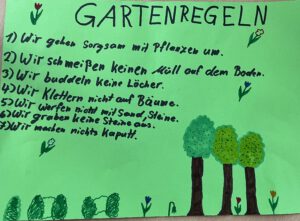 GARTENREGELN
1) Wir gehen Sorgsam mit Pflanzen um.
2) Wir schmeißen keinen Müll auf dem Boden.
3) Wir buddeln keine Löcher.
4) Wir Klettern nicht auf Bäume.
5) Wir werfen nicht mit Sand, Steine.
6) Wir graben keine Steine aus.
7) Wir machen nichts Kaputt.